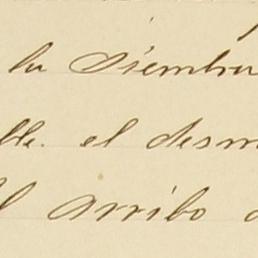 la siembra
el desm
el arribo